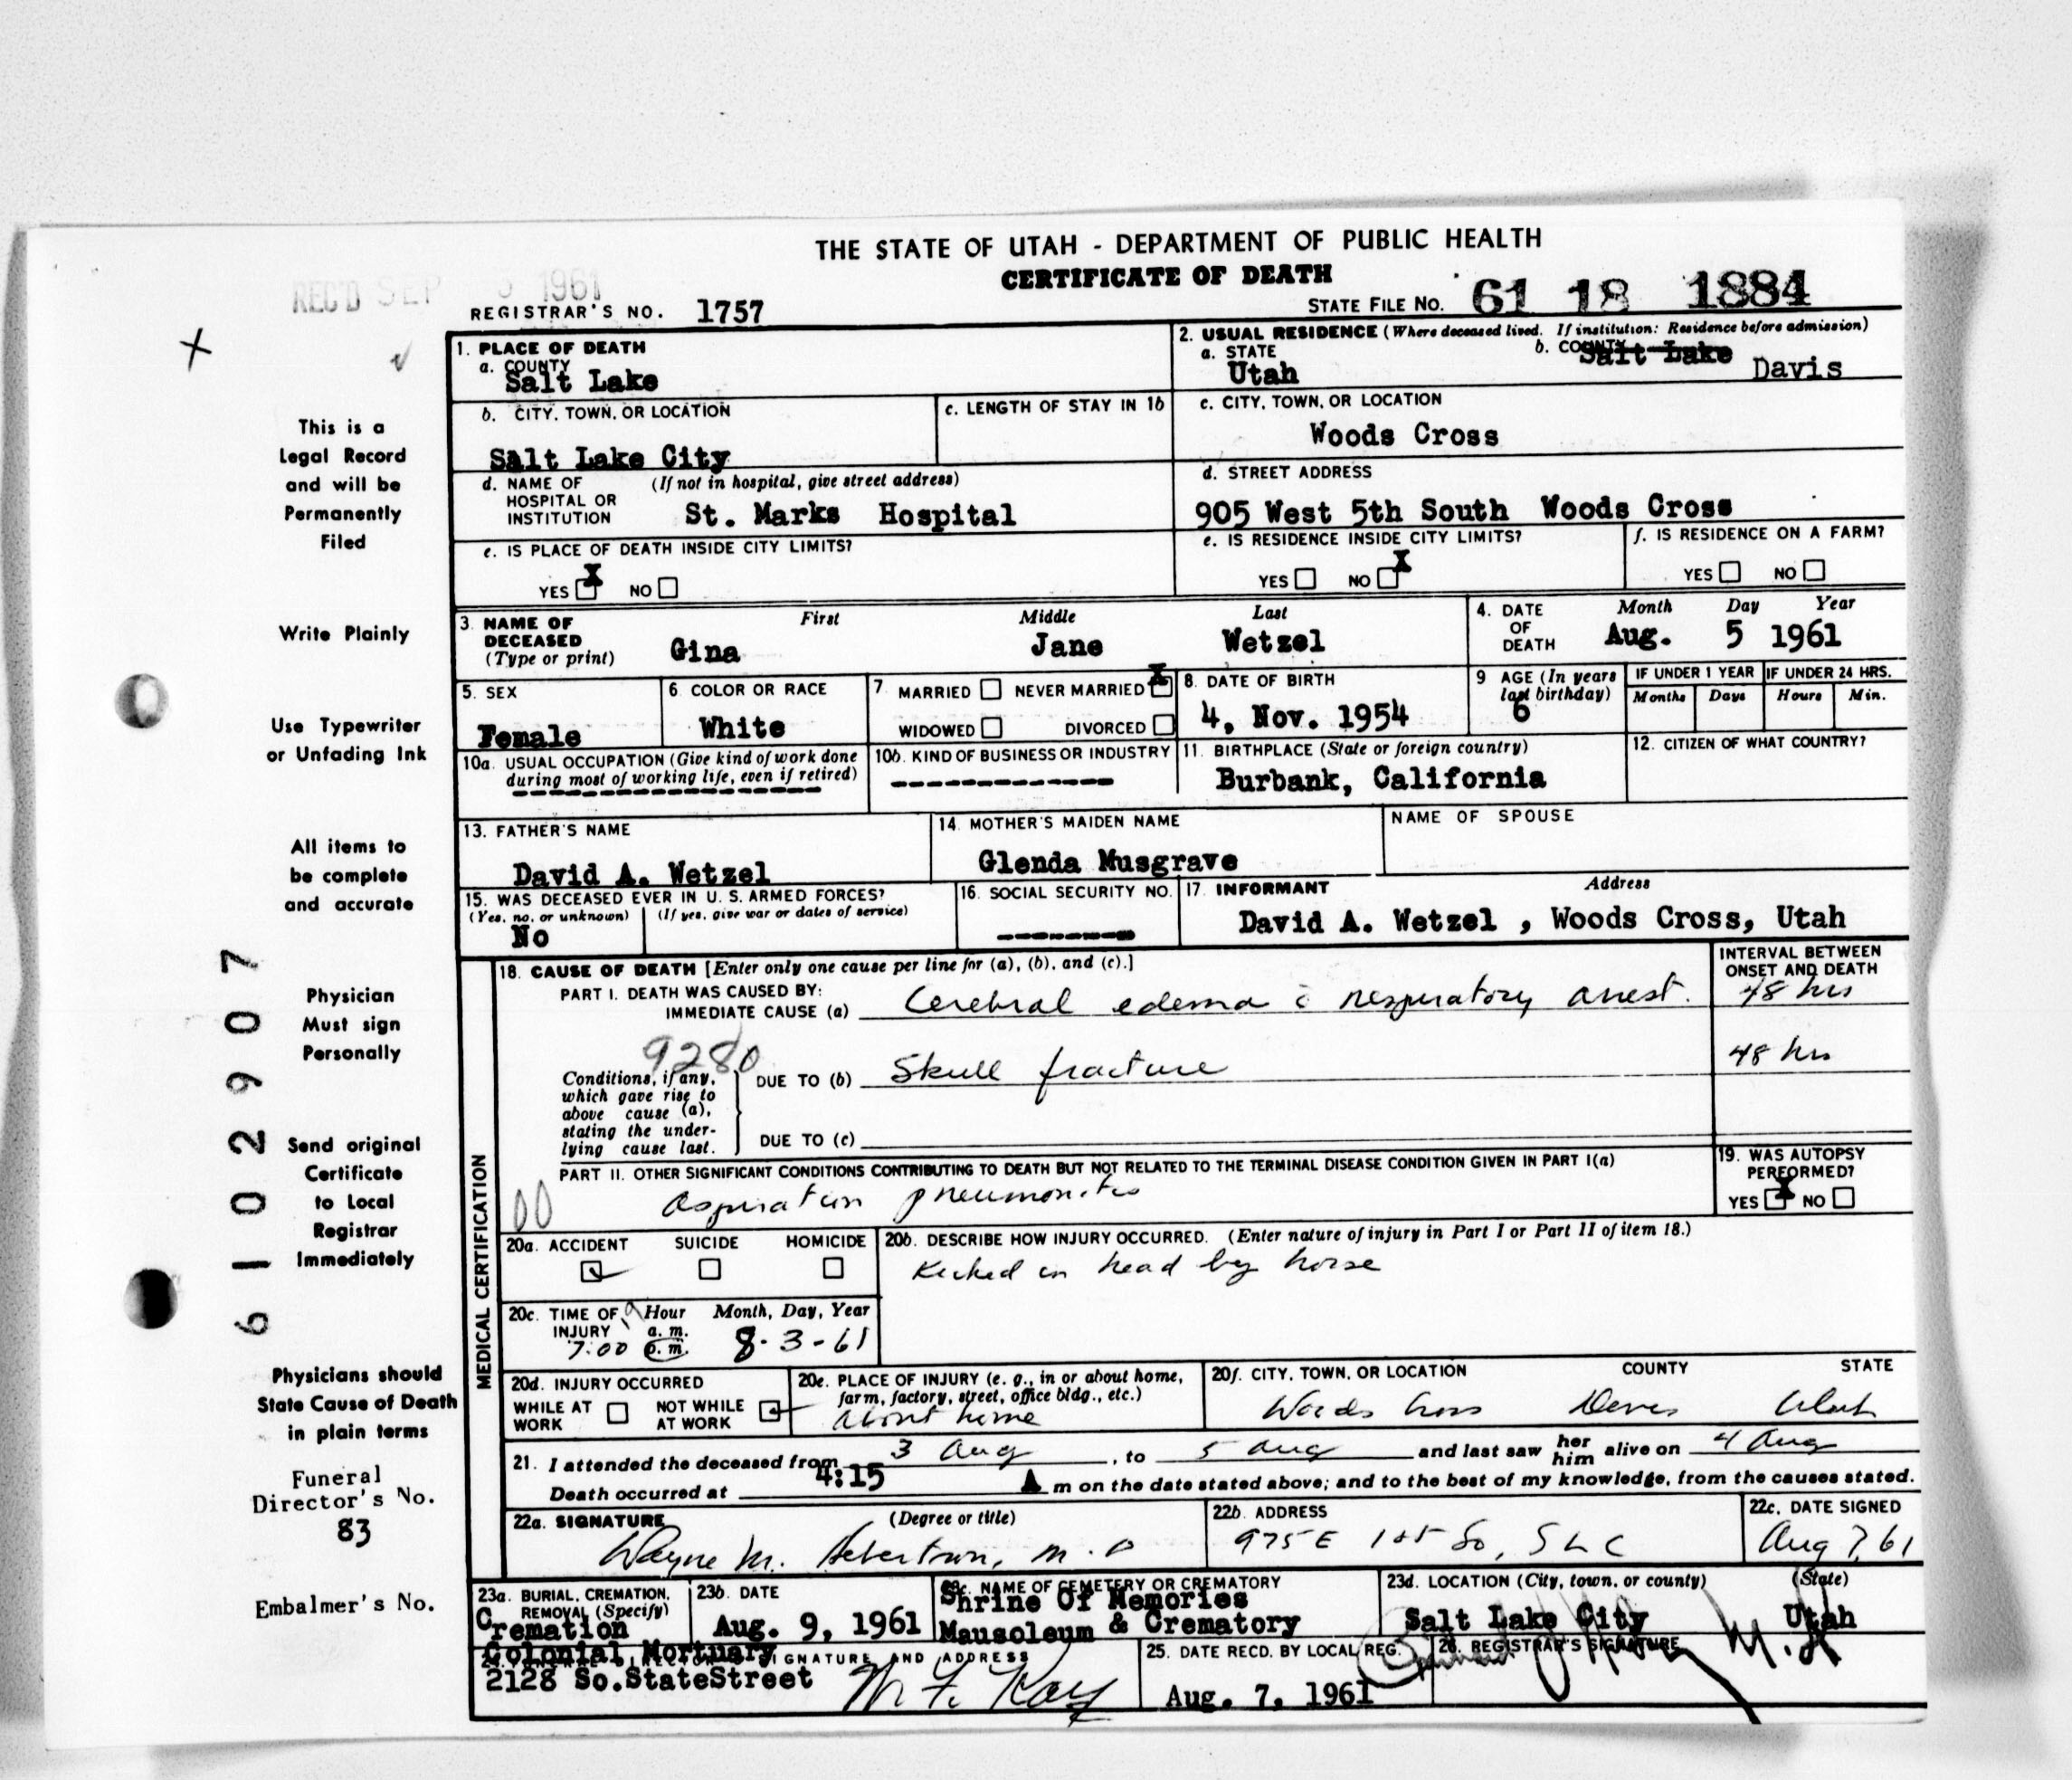 THE STATE OF UTAH - DEPARTMENT OF PUBLIC HEALTH
CERTIFICATE OF DEATH
REC'D SEP 1961
REGISTRAR'S NO. 1757
STATE FILE NO. 61 18 1884
This is a Legal Record and will be Permanently Filed
Write Plainly
Use Typewriter or Unfading Ink
All items to be complete and accurate
Physician Must sign Personally
Send original Certificate to Local Registrar Immediately
Physicians should State Cause of Death in plain terms
Funeral Director's No.
83
Embalmer's No.
6102907
1. PLACE OF DEATH
a. COUNTY
Salt Lake
2. USUAL RESIDENCE (Where deceased lived. If institution: Residence before admission)
a. STATE
Utah
b. COUNTY
Salt Lake Davis
b. CITY, TOWN, OR LOCATION
Salt Lake City
c. LENGTH OF STAY IN 1b
c. CITY, TOWN, OR LOCATION
Woods Cross
d. NAME OF HOSPITAL OR INSTITUTION (If not in hospital, give street address)
St. Marks Hospital
d. STREET ADDRESS
905 West 5th South Woods Cross
e. IS PLACE OF DEATH INSIDE CITY LIMITS?
YES X NO
e. IS RESIDENCE INSIDE CITY LIMITS?
YES NO X
f. IS RESIDENCE ON A FARM?
YES NO
3. NAME OF DECEASED (Type or print)
First Middle Last
Gina Jane Wetzel
4. DATE OF DEATH
Month Day Year
Aug. 5 1961
5. SEX
Female
6. COLOR OR RACE
White
7. MARRIED NEVER MARRIED X
WIDOWED DIVORCED
8. DATE OF BIRTH
4, Nov. 1954
9 AGE (In years last birthday)
6
IF UNDER 1 YEAR
Months Days
IF UNDER 24 HRS.
Hours Min.
10a. USUAL OCCUPATION (Give kind of work done during most of working life, even if retired)
10b. KIND OF BUSINESS OR INDUSTRY
11. BIRTHPLACE (State or foreign country)
Burbank, California
12. CITIZEN OF WHAT COUNTRY?
13. FATHER'S NAME
David A. Wetzel
14. MOTHER'S MAIDEN NAME
Glenda Musgrave
NAME OF SPOUSE
15. WAS DECEASED EVER IN U. S. ARMED FORCES?
(Yes, no, or unknown) (If yes, give war or dates of service)
No
16. SOCIAL SECURITY NO.
17. INFORMANT Address
David A. Wetzel , Woods Cross, Utah
MEDICAL CERTIFICATION
18. CAUSE OF DEATH [Enter only one cause per line for (a), (b), and (c).]
INTERVAL BETWEEN ONSET AND DEATH
PART I. DEATH WAS CAUSED BY:
IMMEDIATE CAUSE (a) Cerebral edema c̄ respiratory arrest. 48 hrs
9280
Conditions, if any, which gave rise to above cause (a), stating the underlying cause last.
DUE TO (b) Skull fracture 48 hrs
DUE TO (c)
PART II. OTHER SIGNIFICANT CONDITIONS CONTRIBUTING TO DEATH BUT NOT RELATED TO THE TERMINAL DISEASE CONDITION GIVEN IN PART I(a)
00 Aspiration pneumonitis
19. WAS AUTOPSY PERFORMED?
YES X NO
20a. ACCIDENT SUICIDE HOMICIDE
20b. DESCRIBE HOW INJURY OCCURRED. (Enter nature of injury in Part I or Part II of item 18.)
Kicked in head by horse
20c. TIME OF INJURY Hour Month, Day, Year
7:00 a. m. p. m. 8-3-61
20d. INJURY OCCURRED
WHILE AT WORK NOT WHILE AT WORK
20e. PLACE OF INJURY (e. g., in or about home, farm, factory, street, office bldg., etc.)
About home
20f. CITY, TOWN, OR LOCATION COUNTY STATE
Woods Cross Davis Utah
21. I attended the deceased from 3 Aug , to 5 Aug and last saw her him alive on 4 Aug
Death occurred at 4:15 A m on the date stated above; and to the best of my knowledge, from the causes stated.
22a. SIGNATURE (Degree or title)
Wayne M. Hebertson, M.D
22b. ADDRESS
975 E 1st So, SLC
22c. DATE SIGNED
Aug 7, 61
23a. BURIAL, CREMATION, REMOVAL (Specify)
Cremation
23b. DATE
Aug. 9, 1961
23c. NAME OF CEMETERY OR CREMATORY
Shrine Of Memories
Mausoleum & Crematory
23d. LOCATION (City, town, or county) (State)
Salt Lake City Utah
Colonial Mortuary
SIGNATURE AND ADDRESS
2128 So.StateStreet M F. Kay
25. DATE RECD. BY LOCAL REG.
Aug. 7, 1961
26. REGISTRAR'S SIGNATURE